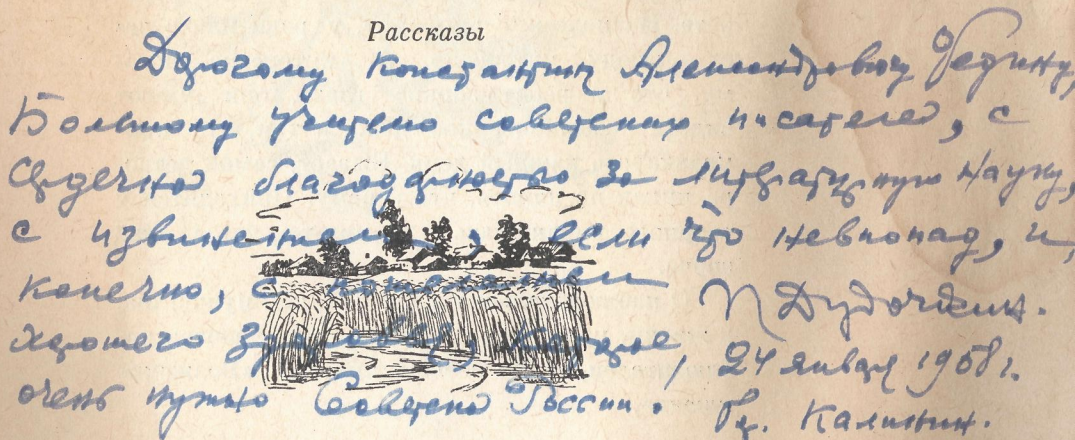 Рассказы
Дорогому Константину Александровичу Федину,
Большому учителю советских писателей, с
сердечной благодарностью за литературную науку,
с извинением, если что невпопад, и,
конечно, с пожеланием
хорошего здоровья, которое
очень нужно Советской России.
П Дудочкин.
24 января 1958 г.
гор. Калинин.